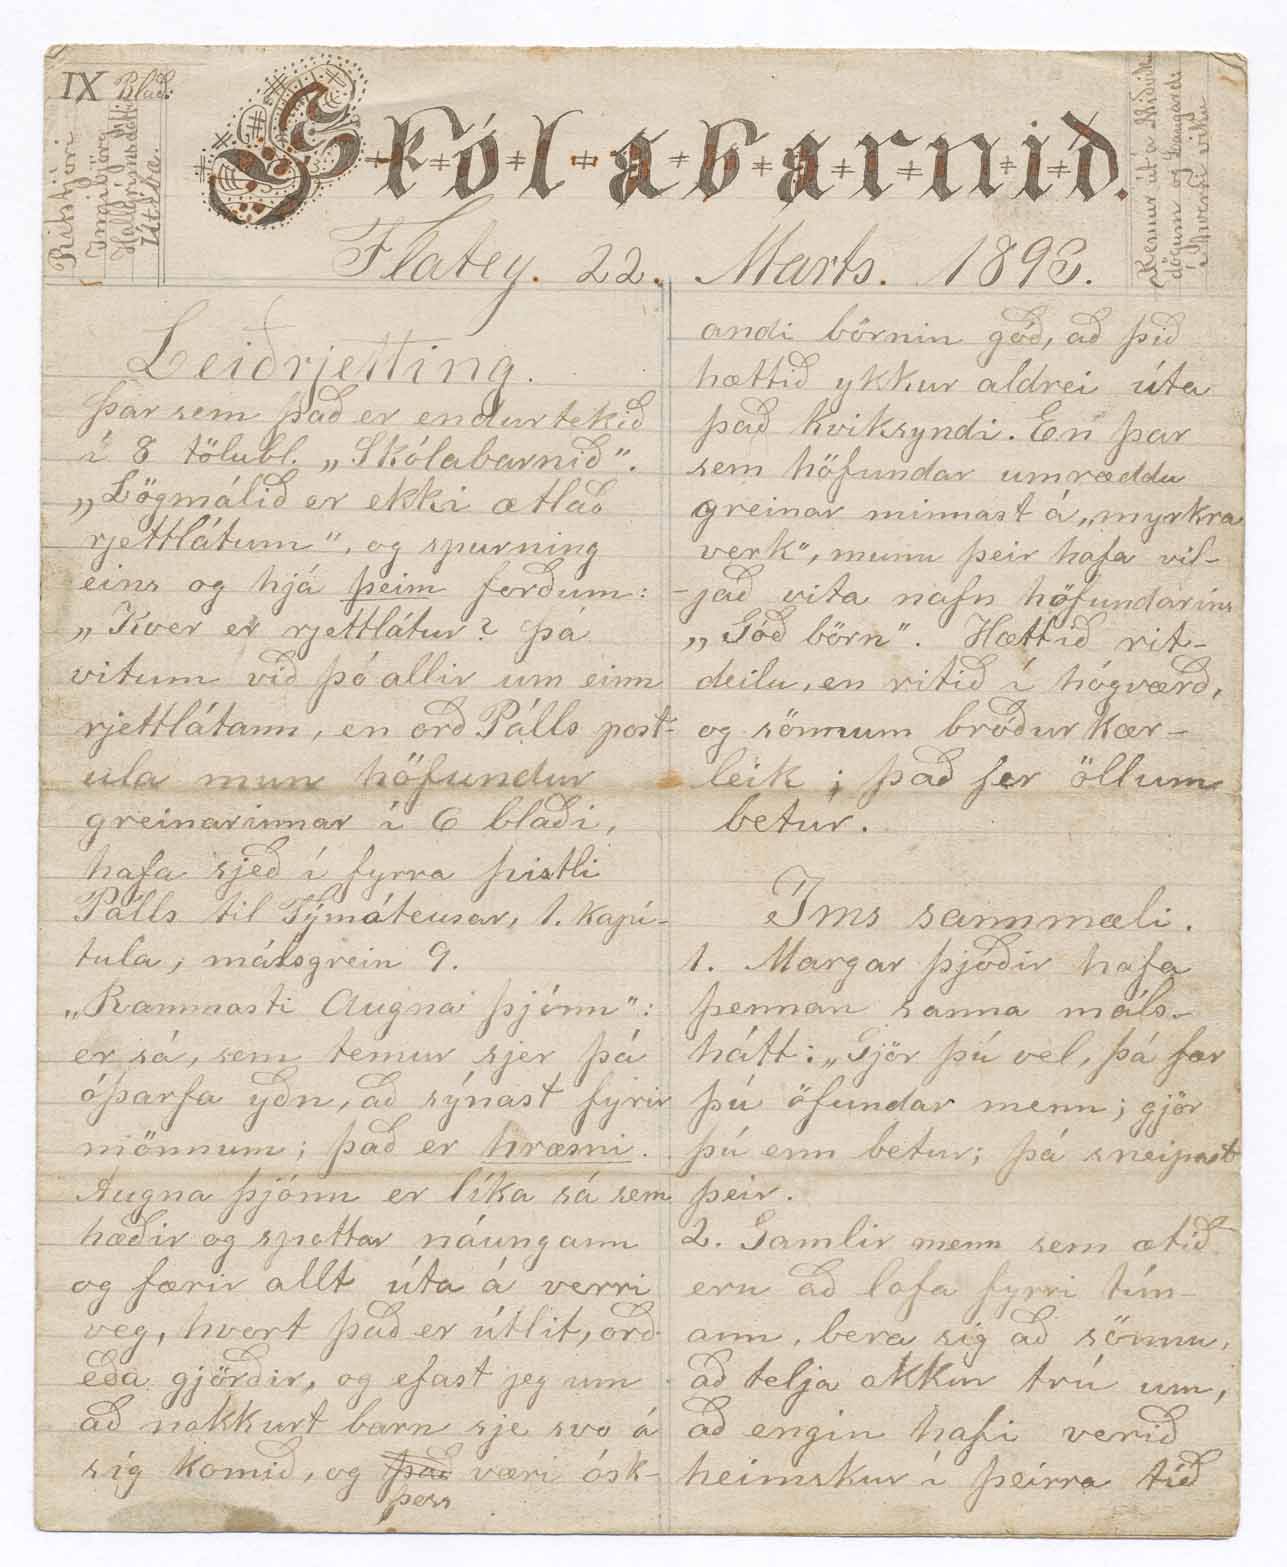 IX Blað:
Ritstjóri
Ingibjörg
Hallgrímsdóttir
Útskr.
Skólabarnið.
Kemur út á Miðviku
dögum og Laugardö
í hverri viku
Flatey. 22. Marts. 1893.
Leiðrjetting.
Þar sem það er endurtekið
í 8 tölubl. „Skólabarnið".
„Lögmálið er ekki ætlað
rjettlátum", og spurning
eins og hjá þeim forðum:
„Kver er rjettlátur? þá
vitum við þó allir um einn
rjettlátann, en orð Pálls post-
ula mun höfundur
greinarinnar í 6 blaði,
hafa sjeð í fyrra pistli
Pálls til Týmáteusar, 1. kapí-
tula, málsgrein 9.
„Rammasti Augna þjónn":
er sá, sem temur sjer þá
óþarfa yðn, að sýnast fyrir
mönnum; það er hræsni.
Augna þjónn er líka sá sem
hæðir og spottar náungann
og færir allt úta á verri
veg, hvort það er útlit, orð
eða gjörðir, og efast jeg um
að nokkurt barn sje svo á
sig komið, og það væri ósk-
þess
andi börnin góð, að þið
hættið ykkur aldrei úta
það kviksyndi. En þar
sem höfundar umræddu
greinar minnast á „myrkra
verk", munu þeir hafa vil-
-jað vita nafn höfundarins
„Góð börn". Hættið rit-
deilu, en ritið í hógværð,
og sönnum bróður kær-
leik; það fer öllum
betur.
Íms sannmæli.
1. Margar þjóðir hafa
þennan sanna máls-
hátt: „Gjör þú vel, þá fær
þú öfundar menn; gjör
þú enn betur; þá sneipast
þeir.
2. Gamlir menn sem ætið
eru að lofa fyrri tím-
ann, bera sig að sönnu,
að telja okkur trú um,
að engin hafi verið
heimskur í þeirra tíð